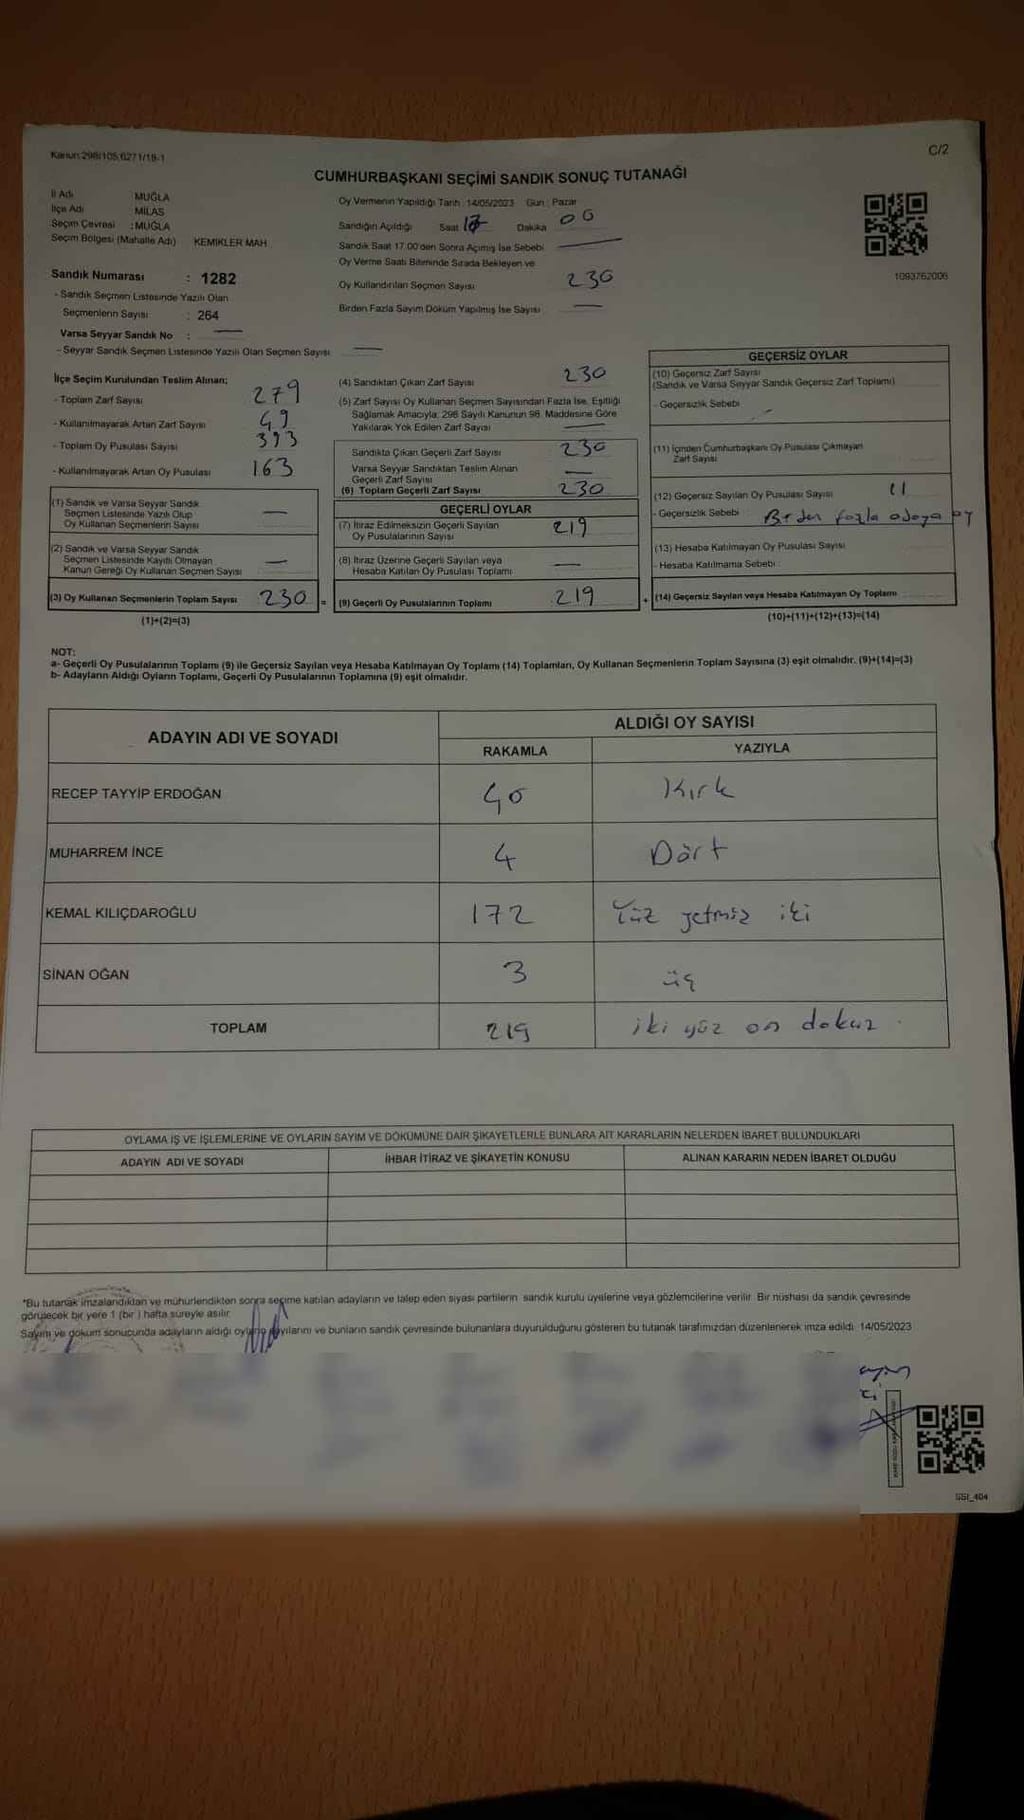 Kanun:298/105,6271/18-1
C/2
CUMHURBAŞKANI SEÇİMİ SANDIK SONUÇ TUTANAĞI
İl Adı MUĞLA
İlçe Adı MİLAS
Seçim Çevresi : MUĞLA
Seçim Bölgesi (Mahalle Adı) KEMIKLER MAH
Sandık Numarası : 1282
- Sandık Seçmen Listesinde Yazılı Olan
Seçmenlerin Sayısı : 264
Varsa Seyyar Sandık No : —
- Seyyar Sandık Seçmen Listesinde Yazılı Olan Seçmen Sayısı —
Oy Vermenin Yapıldığı Tarih : 14/05/2023 Gün : Pazar
Sandığın Açıldığı Saat 17 Dakika 00
Sandık Saat 17.00'den Sonra Açılmış İse Sebebi —
Oy Verme Saati Bitiminde Sırada Bekleyen ve
Oy Kullandırılan Seçmen Sayısı 230
Birden Fazla Sayım Döküm Yapılmış İse Sayısı —
1093762006
İlçe Seçim Kurulundan Teslim Alınan;
- Toplam Zarf Sayısı 279
- Kullanılmayarak Artan Zarf Sayısı 49
- Toplam Oy Pusulası Sayısı 393
- Kullanılmayarak Artan Oy Pusulası 163
(1) Sandık ve Varsa Seyyar Sandık
Seçmen Listesinde Yazılı Olup
Oy Kullanan Seçmenlerin Sayısı —
(2) Sandık ve Varsa Seyyar Sandık
Seçmen Listesinde Kayıtlı Olmayan
Kanun Gereği Oy Kullanan Seçmen Sayısı —
(3) Oy Kullanan Seçmenlerin Toplam Sayısı 230 =
(1)+(2)=(3)
(4) Sandıktan Çıkan Zarf Sayısı 230
(5) Zarf Sayısı Oy Kullanan Seçmen Sayısından Fazla İse, Eşitliği
Sağlamak Amacıyla, 298 Sayılı Kanunun 98. Maddesine Göre
Yakılarak Yok Edilen Zarf Sayısı —
Sandıkta Çıkan Geçerli Zarf Sayısı 230
Varsa Seyyar Sandıktan Teslim Alınan
Geçerli Zarf Sayısı —
(6) Toplam Geçerli Zarf Sayısı 230
GEÇERLİ OYLAR
(7) İtiraz Edilmeksizin Geçerli Sayılan
Oy Pusulalarının Sayısı 219
(8) İtiraz Üzerine Geçerli Sayılan veya
Hesaba Katılan Oy Pusulası Toplamı —
(9) Geçerli Oy Pusulalarının Toplamı 219 +
GEÇERSİZ OYLAR
(10) Geçersiz Zarf Sayısı
(Sandık ve Varsa Seyyar Sandık Geçersiz Zarf Toplamı)
- Geçersizlik Sebebi
(11) İçinden Cumhurbaşkanı Oy Pusulası Çıkmayan
Zarf Sayısı
(12) Geçersiz Sayılan Oy Pusulası Sayısı 11
- Geçersizlik Sebebi : Birden fazla adaya oy
(13) Hesaba Katılmayan Oy Pusulası Sayısı
- Hesaba Katılmama Sebebi :
(14) Geçersiz Sayılan veya Hesaba Katılmayan Oy Toplamı
(10)+(11)+(12)+(13)=(14)
NOT:
a- Geçerli Oy Pusulalarının Toplamı (9) ile Geçersiz Sayılan veya Hesaba Katılmayan Oy Toplamı (14) Toplamları, Oy Kullanan Seçmenlerin Toplam Sayısına (3) eşit olmalıdır. (9)+(14)=(3)
b- Adayların Aldığı Oyların Toplamı, Geçerli Oy Pusulalarının Toplamına (9) eşit olmalıdır.
ADAYIN ADI VE SOYADI
ALDIĞI OY SAYISI
RAKAMLA YAZIYLA
RECEP TAYYİP ERDOĞAN 40 Kırk
MUHARREM İNCE 4 Dört
KEMAL KILIÇDAROĞLU 172 Yüz yetmiş iki
SİNAN OĞAN 3 üç
TOPLAM 219 iki yüz on dokuz
OYLAMA İŞ VE İŞLEMLERİNE VE OYLARIN SAYIM VE DÖKÜMÜNE DAİR ŞİKAYETLERLE BUNLARA AİT KARARLARIN NELERDEN İBARET BULUNDUKLARI
ADAYIN ADI VE SOYADI İHBAR İTİRAZ VE ŞİKAYETİN KONUSU ALINAN KARARIN NEDEN İBARET OLDUĞU
*Bu tutanak imzalandıktan ve mühürlendikten sonra seçime katılan adayların ve talep eden siyasi partilerin sandık kurulu üyelerine veya gözlemcilerine verilir. Bir nüshası da sandık çevresinde
görülecek bir yere 1 (bir) hafta süreyle asılır.
Sayım ve döküm sonucunda adayların aldığı oyların sayılarını ve bunların sandık çevresinde bulunanlara duyurulduğunu gösteren bu tutanak tarafımızdan düzenlenerek imza edildi. 14/05/2023
SSI_404